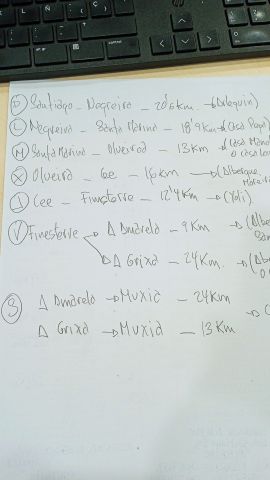 D Santiago - Negreira - 20'6 Km. → (Albequin)
L Negreira - Santa Marina - 18'9 Km → (Casa Pepa)
M Santa Marina - Olveiroa - 13 Km → (Casa
X Olveiroa - Cee - 16 Km → (Albergue
J Cee - Finesterre - 12'4 Km → (
V Finesterre → A Amarela - 9 Km → (Alber
→ A Grixa - 24 Km. → (Albe
S A Amarela → Muxia - 24 Km
A Grixa → Muxia - 13 Km